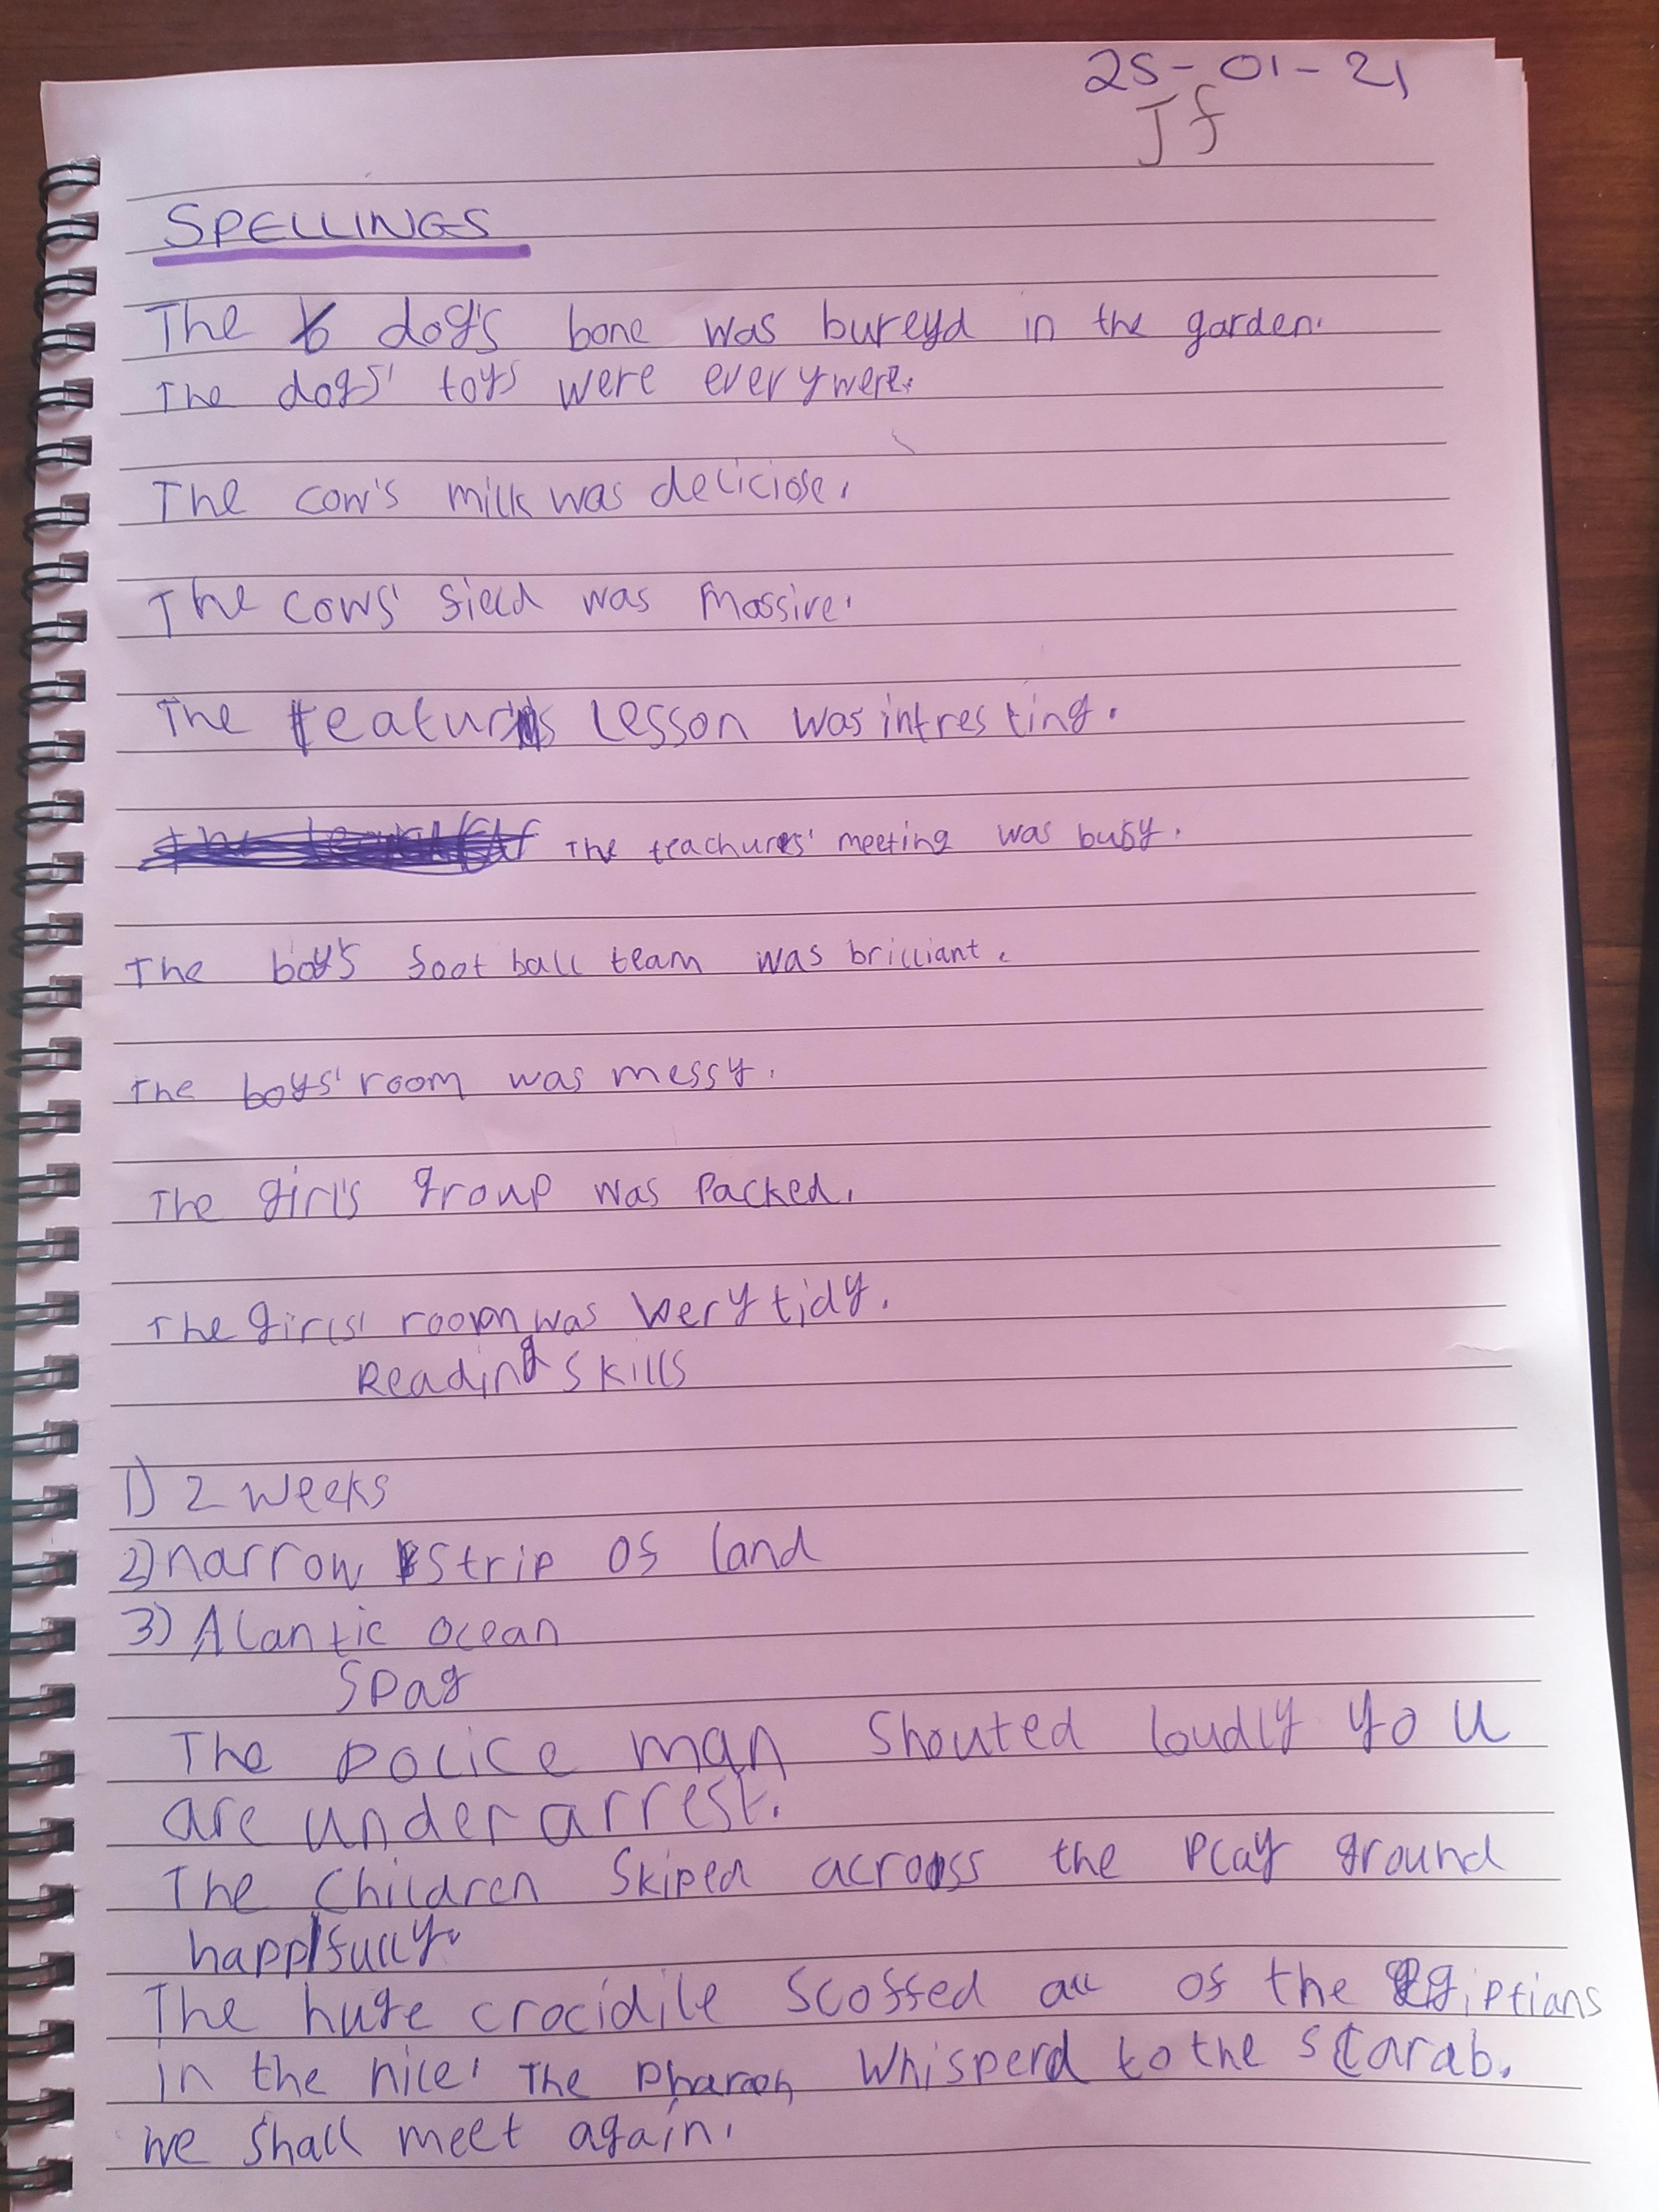 25-01-21
Jf
SPELLINGS
The dog's bone was bureyd in the garden.
The dogs' toys were everywere.
The cow's milk was deliciose.
The cows' field was massive.
The teatur's lesson was intresting.
The teachures' meeting was busy.
The boy's foot ball team was brilliant.
The boys' room was messy.
The girl's group was packed.
The girls' room was very tidy.
Reading skills
1) 2 weeks
2) narrow strip of land
3) Alantic ocean
Spag
The police man shouted loudly you
are under arrest.
The children skiped across the play ground
happyfully.
The huge crocidile scoffed all of the egiptians
in the nile. The Pharoh whisperd to the scarab.
we shall meet again.